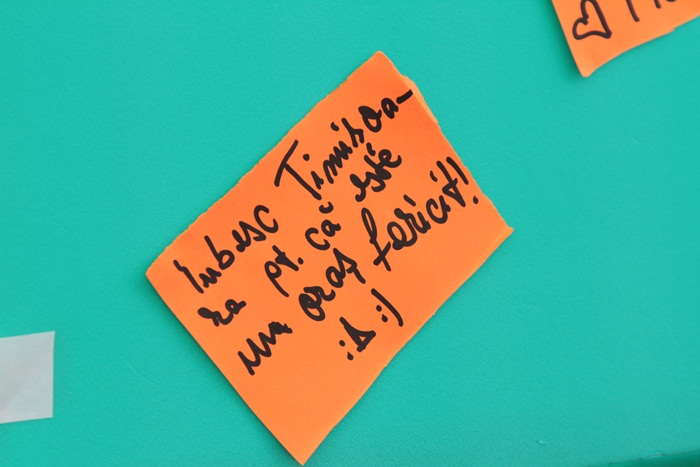 Iubesc Timisoa-
ra pt. că este
un oraș fericit!
:D :)